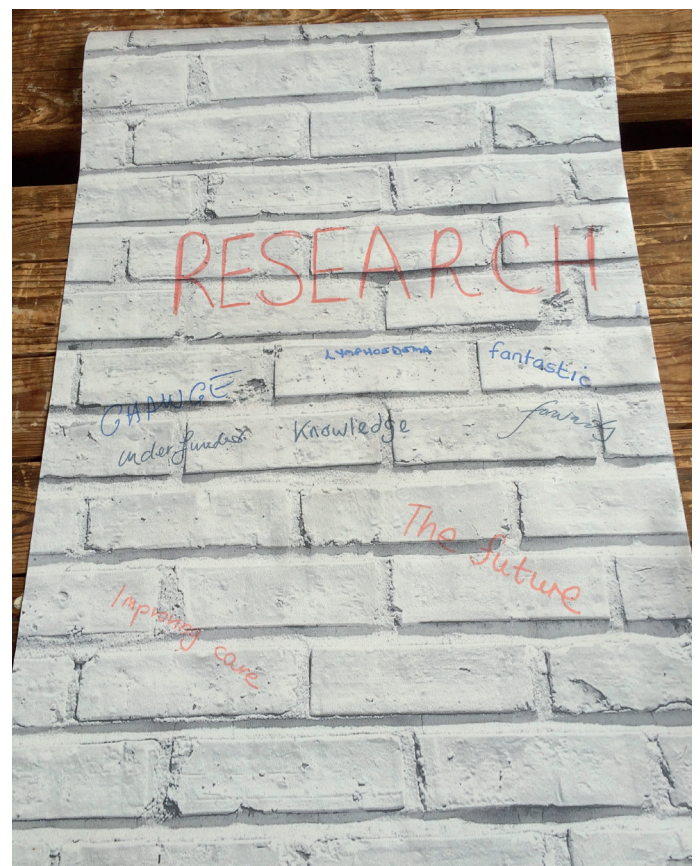 RESEARCH
LYMPHOEDEMA
fantastic
CHANGE
underfunded
Knowledge
The future
Improving care